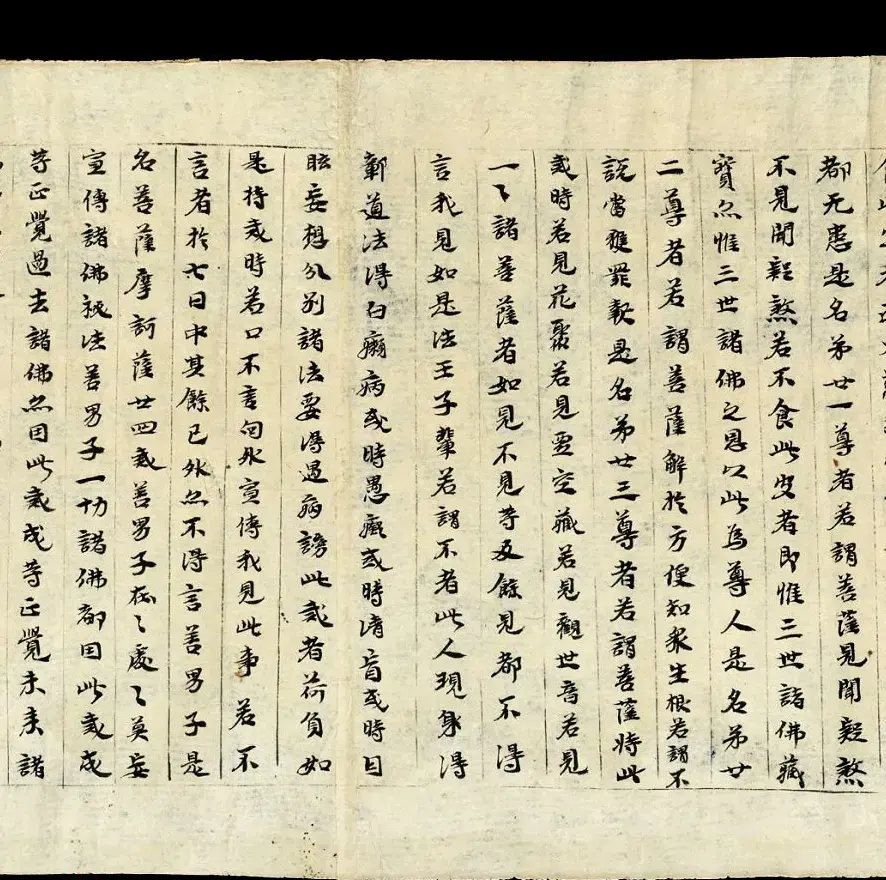 都无患是名弟廿一尊者若謂菩薩見聞疑煞
不見聞疑煞若不食此宍者即惟三世諸佛藏
寶亦惟三世諸佛之恩以此為尊人是名弟廿
二尊者若謂菩薩解於方便知衆生根若謂不
說當獲罪報是名弟廿三尊者若謂菩薩持此
戒時若見花聚若見虛空藏若見觀世音若見
一〻諸菩薩者如見不見等及餘見都不得
言我見如是法王子輩若謂不者此人現身得
鄣道法得白癩病或時愚癡或時清盲或時目
眩妄想分別諸法要得過病謗此戒者荷負如
是持戒時若口不言句外宣傳我見此事若不
言者於七日中其餘已外亦不得言善男子是
名善薩摩訶薩廿四戒善男子在〻處〻莫妄
宣傳諸佛秘法善男子一切諸佛都因此戒成
等正覺過去諸佛亦因此戒成等正覺未來諸